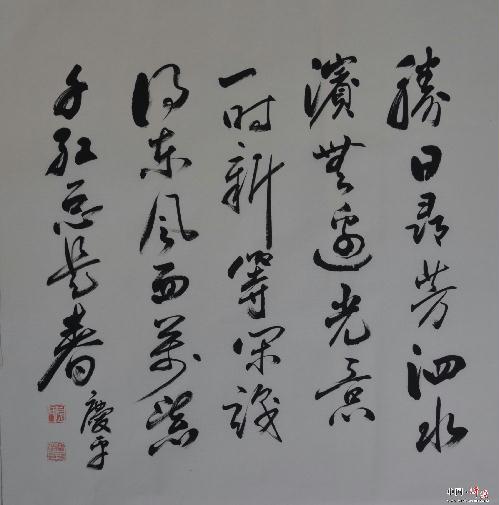 勝日尋芳泗水
濱無邊光景
一时新等閑識
得東風面萬紫
千紅总是春
慶平
中国